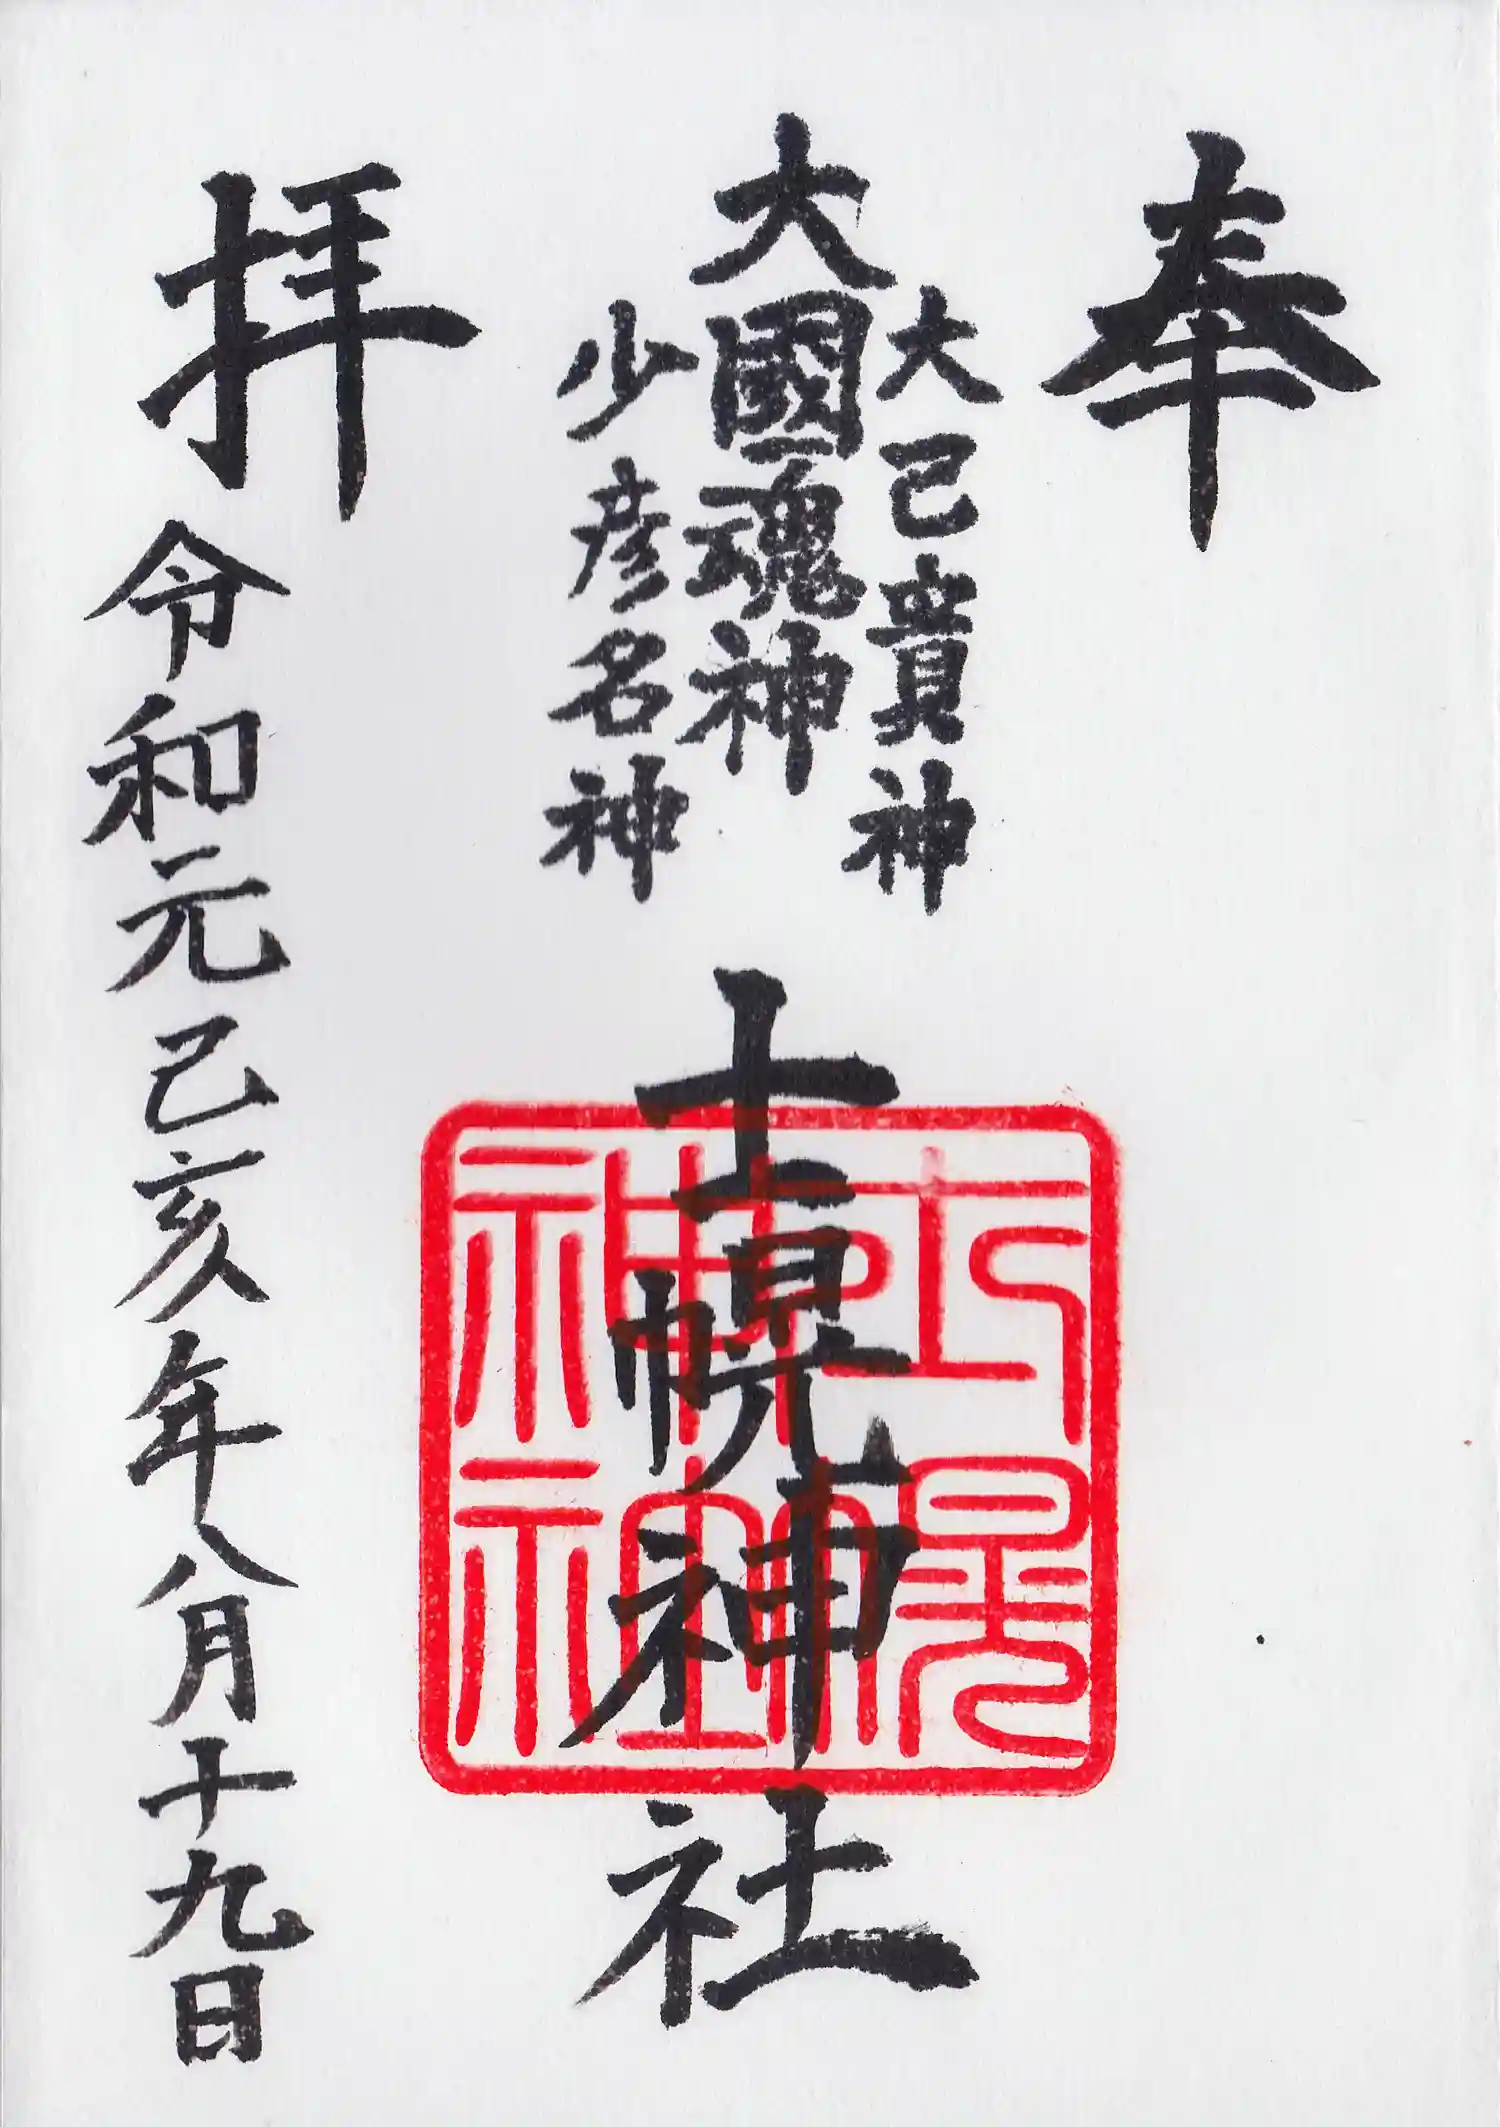 奉
大己貴神
大國魂神
少彦名神
士幌神社
拝
令和元己亥年八月十九日